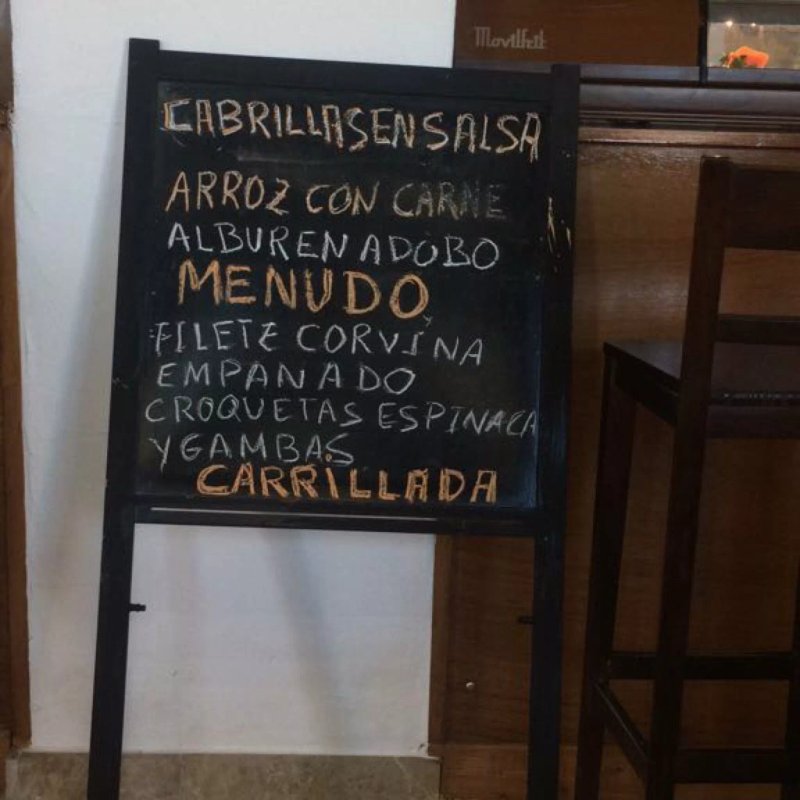 Movilfrit
CABRILLAS EN SALSA
ARROZ CON CARNE
ALBUR EN ADOBO
MENUDO
FILETE CORVINA
EMPANADO
CROQUETAS ESPINACA
Y GAMBAS
CARRILLADA